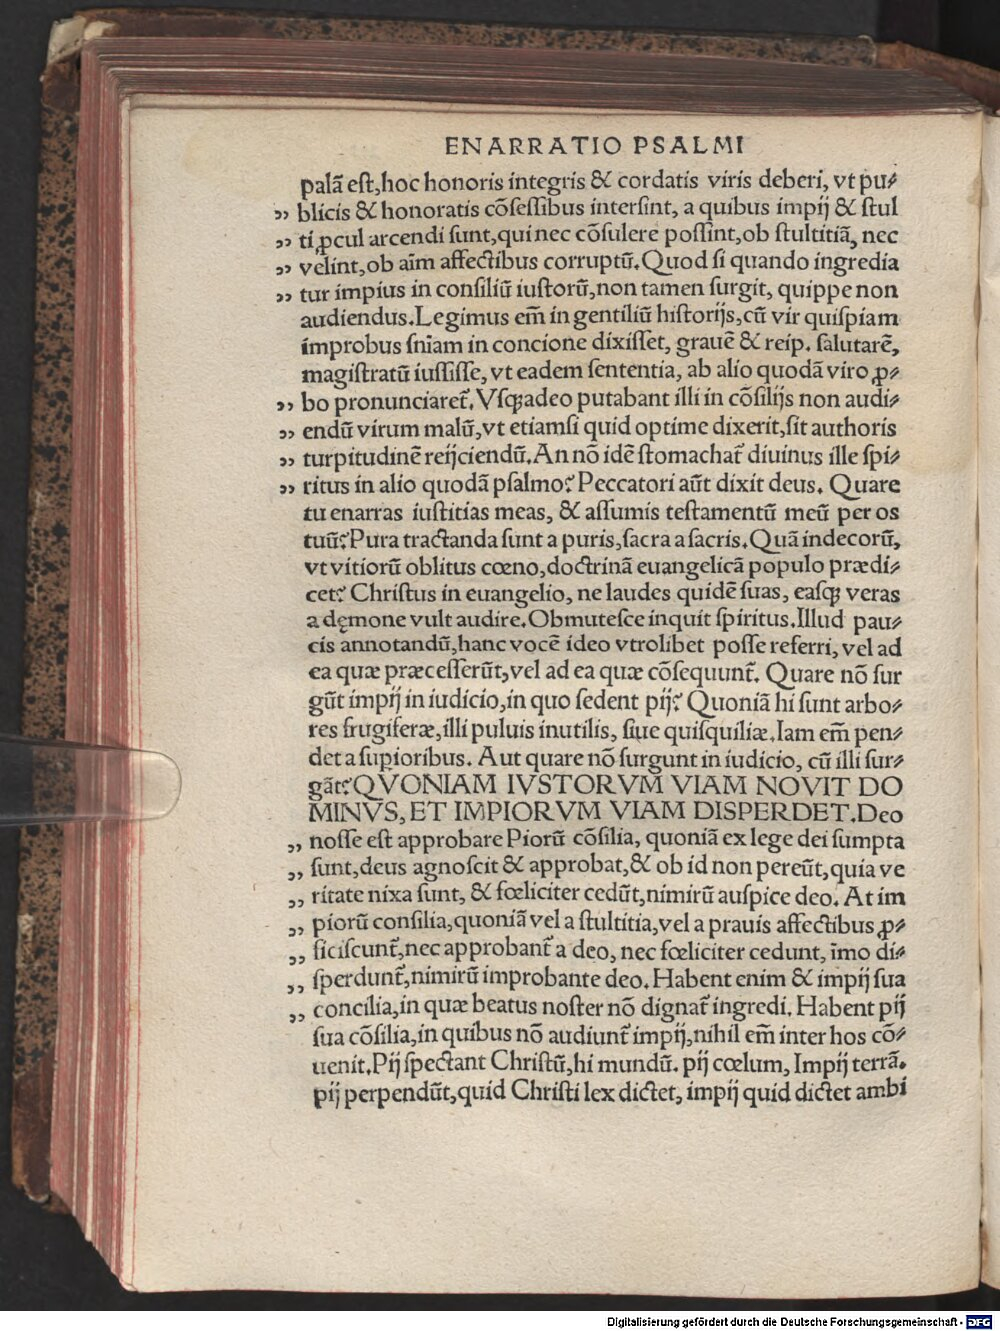 ENARRATIO PSALMI
palã eſt,hoc honoris integris & cordatis viris deberi, vt pu⸗
„ blicis & honoratis cõſeſſibus interſint, a quibus impij & ſtul
„ ti ꝓcul arcendi ſunt,qui nec cõſulere poſſint,ob ſtultitiã, nec
„ velint,ob aĩm affectibus corruptũ.Quod ſi quando ingredia
„ tur impius in conſiliũ iuſtorũ,non tamen ſurgit, quippe non
audiendus.Legimus em̃ in gentiliũ hiſtorijs,cũ vir quiſpiam
improbus ſniam in concione dixiſſet, grauẽ & reip. ſalutarẽ,
magiſtratũ iuſſiſſe, vt eadem ſententia, ab alio quodã viro ꝓ⸗
„ bo pronunciaret᷑.Vſqꝫadeo putabant illi in cõſilijs non audi⸗
„ endũ virum malũ,vt etiamſi quid optime dixerit,ſit authoris
„ turpitudinẽ reijciendũ.An nõ idẽ ſtomachat᷑ diuinus ille ſpi⸗
„ ritus in alio quodã pſalmo? Peccatori aũt dixit deus. Quare
tu enarras iuſtitias meas, & aſſumis teſtamentũ meũ per os
tuũ?Pura tractanda ſunt a puris,ſacra a ſacris.Quã indecorũ,
vt vitiorũ oblitus cœno,doctrinã euangelicã populo prædi⸗
cet? Chriſtus in euangelio, ne laudes quidẽ ſuas, eaſqꝫ veras
a dęmone vult audire.Obmuteſce inquit ſpiritus.Illud pau⸗
cis annotandũ,hanc vocẽ ideo vtrolibet poſſe referri, vel ad
ea quæ præceſſerũt,vel ad ea quæ cõſequunt᷑. Quare nõ ſur
gũt impij in iudicio,in quo ſedent pij? Quoniã hi ſunt arbo⸗
res frugiferæ,illi puluis inutilis, ſiue quiſquiliæ.Iam em̃ pen⸗
det a ſupioribus. Aut quare nõ ſurgunt in iudicio, cũ illi ſur⸗
gãt?QVONIAM IVSTORVM VIAM NOVIT DO
MINVS, ET IMPIORVM VIAM DISPERDET.Deo
„ noſſe eſt approbare Piorũ cõſilia, quoniã ex lege dei ſumpta
„ ſunt,deus agnoſcit & approbat,& ob id non pereũt,quia ve
„ ritate nixa ſunt, & fœliciter cedũt,nimirũ auſpice deo. At im
„ piorũ conſilia,quoniã vel a ſtultitia,vel a prauis affectibus ꝓ⸗
„ ficiſcunt᷑,nec approbant᷑ a deo, nec fœliciter cedunt, ĩmo di⸗
„ ſperdunt᷑,nimirũ improbante deo.Habent enim & impij ſua
„ concilia,in quæ beatus noſter nõ dignat᷑ ingredi. Habent pij
ſua cõſilia,in quibus nõ audiunt᷑ impij,nihil em̃ inter hos cõ⸗
uenit.Pij ſpectant Chriſtũ,hi mundũ. pij cœlum, Impij terrã.
pij perpendũt,quid Chriſti lex dictet, impij quid dictet ambi
Digitalisierung gefördert durch die Deutsche Forschungsgemeinschaft - DFG